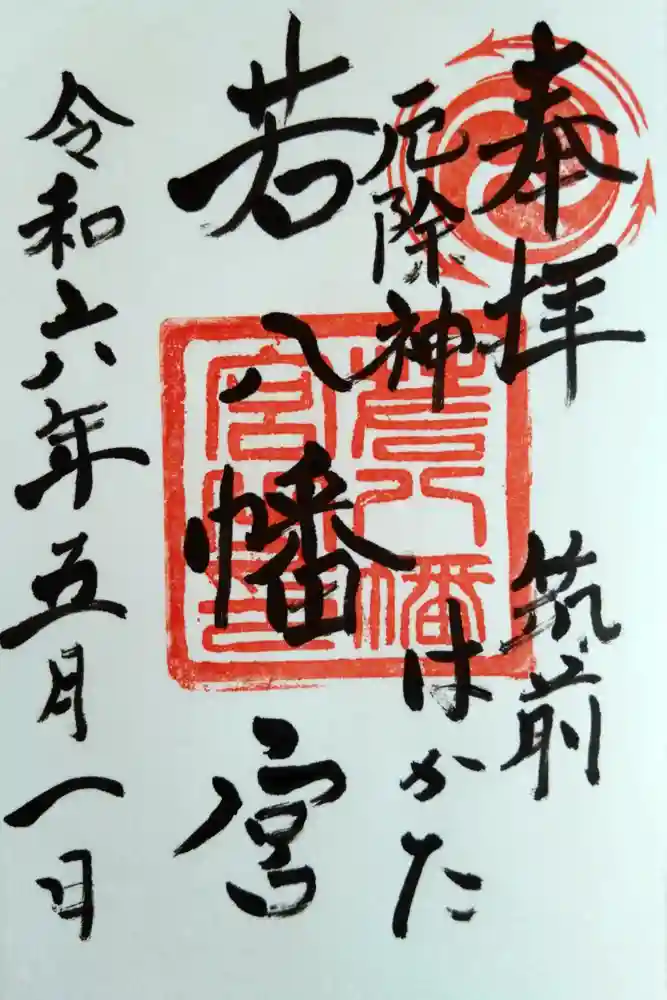 奉拝
筑前
厄除神
はかた
若八幡宮
令和六年五月一日